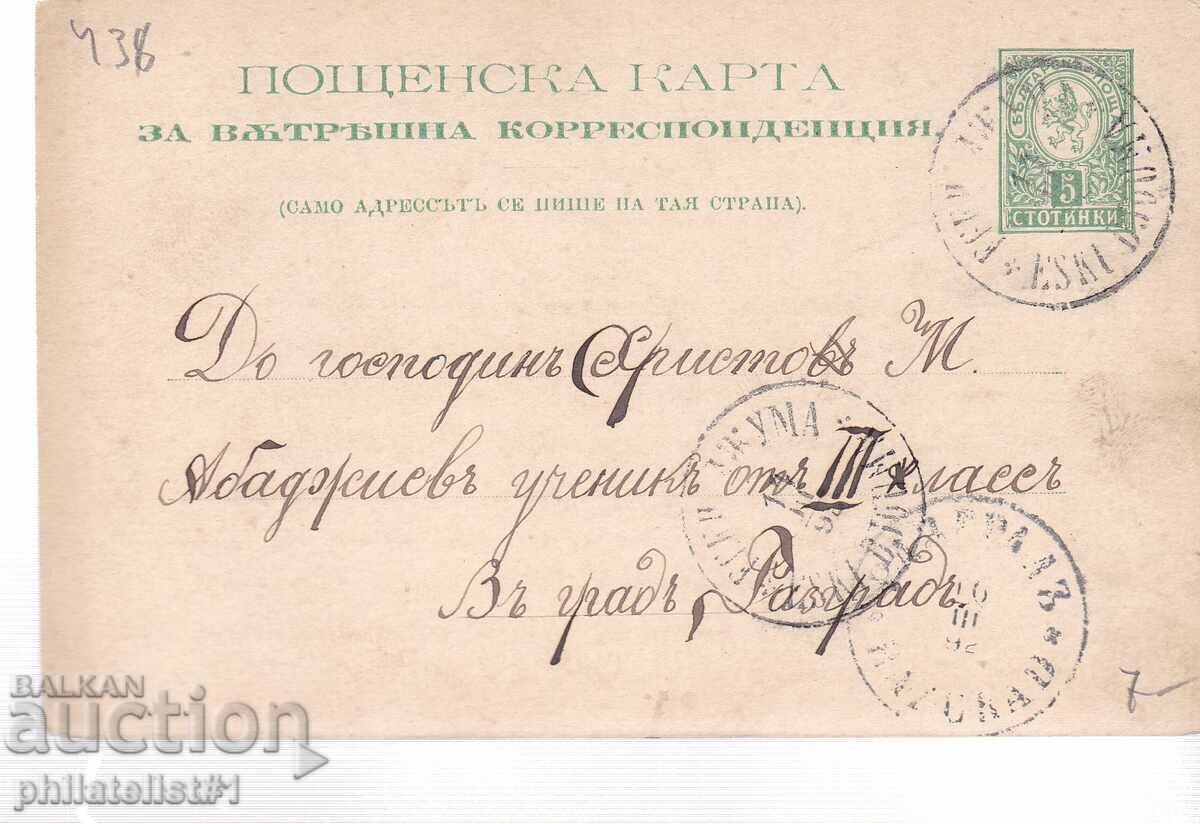 438
ПОЩЕНСКА КАРТА
ЗА ВѪТРѢШНА КОРРЕСПОНДЕНЦИЯ.
(САМО АДРЕССЪТЪ СЕ ПИШЕ НА ТАЯ СТРАНА).
5
СТОТИНКИ
ESKI
До господинъ Христовъ М.
Абаджиевъ ученикъ отъ III классъ
Въ градъ, Разградъ.
ДЖУМА
III
7
BALKAN
auction
philatelist#1